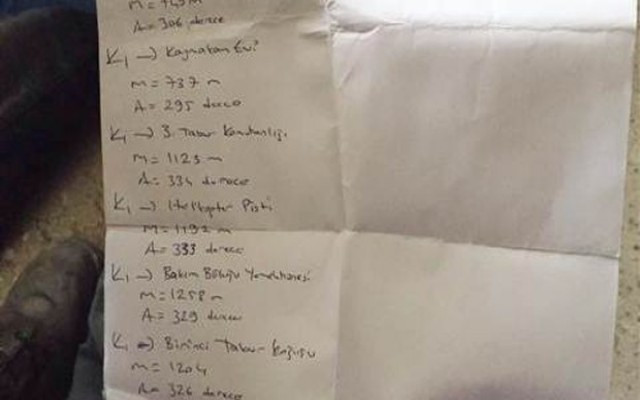 M = 745 m
A = 306 derece
K₁ → Kaymakam Evi
M = 737 m
A = 295 derece
K₁ → 3. Tabur Komutanlığı
M = 1125 m
A = 334 derece
K₁ → Helikopter Pisti
M = 1192 m
A = 333 derece
K₁ → Bakım Bölüğü Yemekhanesi
M = 1258 m
A = 329 derece
K₁ → Birinci Tabur Koğuşu
M = 1204
A = 326 derece